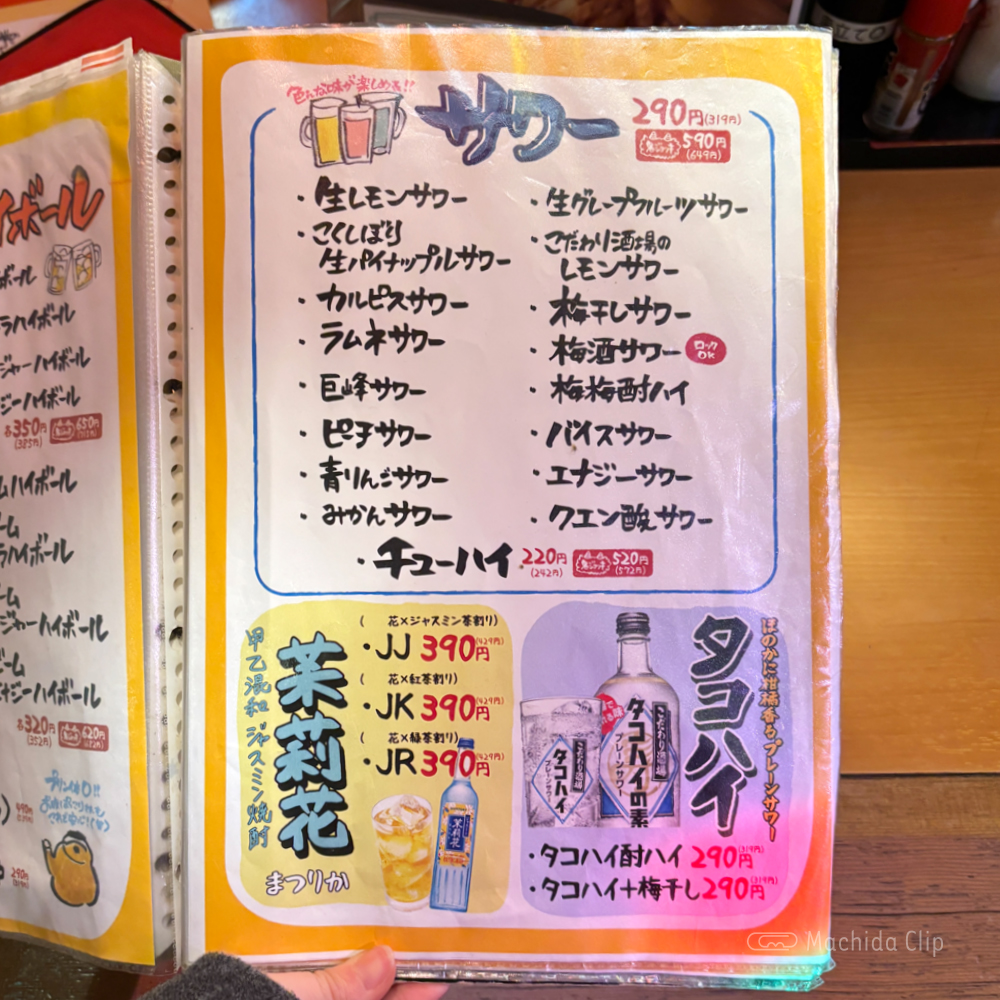 イボール
ボール
ラハイボール
ジャーハイボール
ジーハイボール
各350円
(385円)
650円
ムハイボール
ーム
ラハイボール
ーム
ジャーハイボール
ビーム
ナジーハイボール
各320円
(352円)
620円
290円
色んな味が楽しめる!!
サワー
290円(319円)
590円
(649円)
・生レモンサワー
・こくしぼり
生パイナップルサワー
・カルピスサワー
・ラムネサワー
・巨峰サワー
・ピーチサワー
・青りんごサワー
・みかんサワー
・生グレープフルーツサワー
・こだわり酒場の
レモンサワー
・梅干しサワー
・梅酒サワー
ロック
OK
・梅梅酎ハイ
・バイスサワー
・エナジーサワー
・クエン酸サワー
・チューハイ 220円
(242円)
520円
(572円)
甲乙混和ジャスミン焼酎
茉莉花
まつりか
(花×ジャスミン茶割り)
・JJ 390円(429円)
(花×紅茶割り)
・JK 390円(429円)
(花×緑茶割り)
・JR 390円(429円)
茉莉花
ほのかに柑橘香るプレーンサワー
タコハイ
こだわり酒場
タコハイの素
プレーンサワー
こだわり酒場
タコハイ
プレーンサワー
・タコハイ酎ハイ 290円(319円)
・タコハイ+梅干し 290円(319円)
Machida Clip